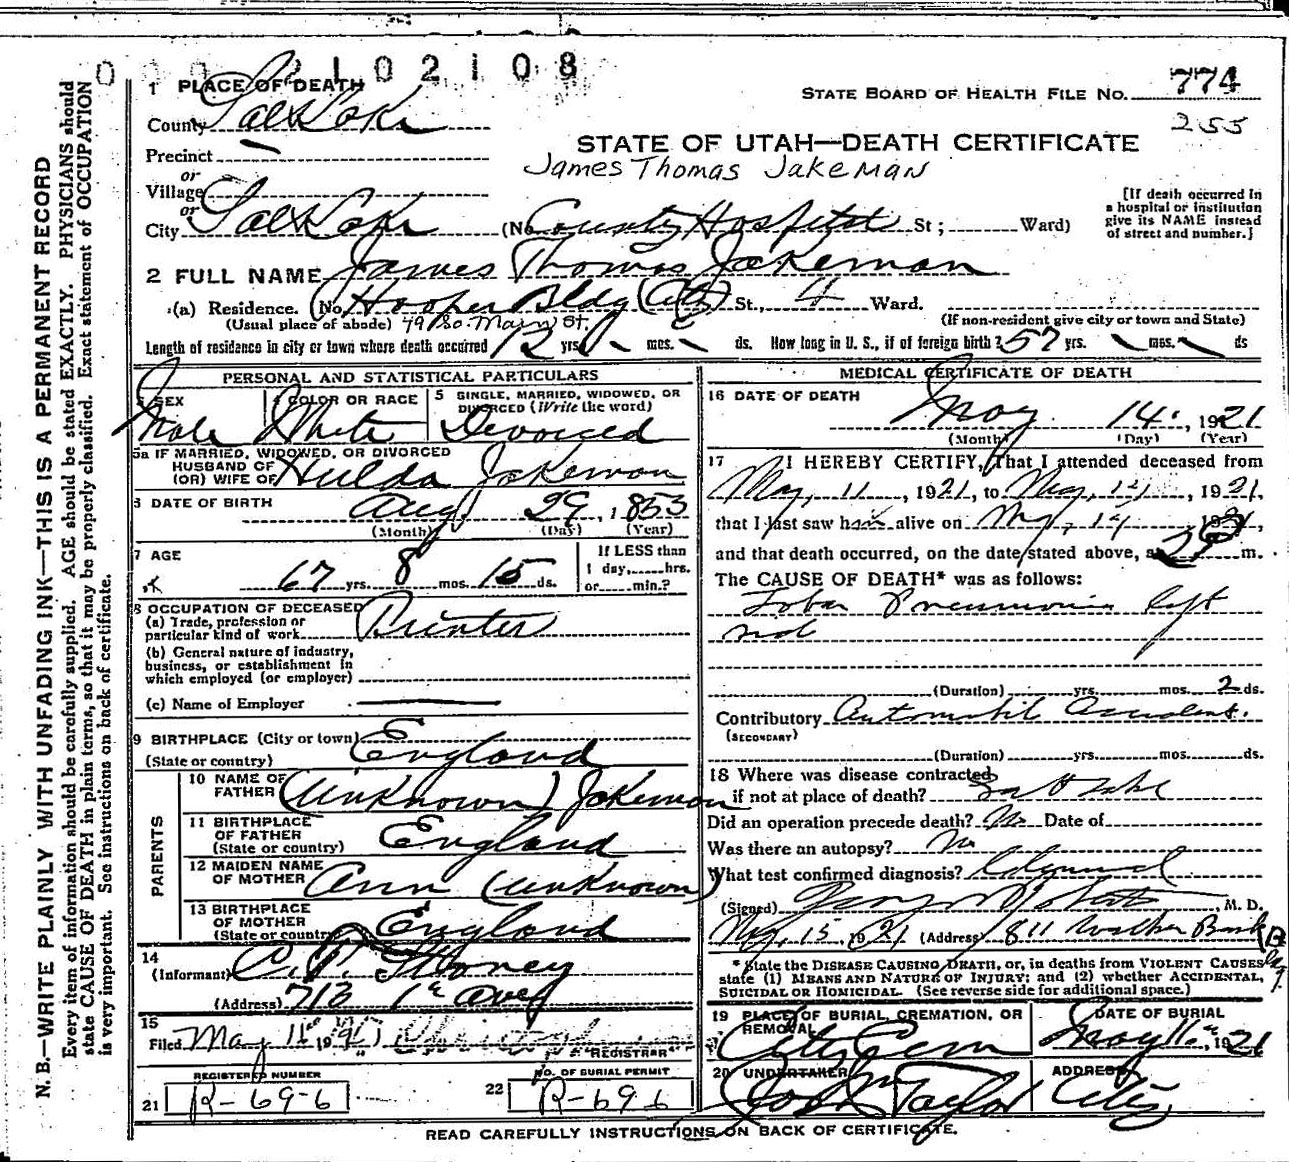 0002102108
1 PLACE OF DEATH
County Salt Lake
STATE BOARD OF HEALTH FILE NO. 774
255
Precinct
or
Village
or
City Salt Lake (No County Hospital St; Ward)
STATE OF UTAH—DEATH CERTIFICATE
James Thomas Jakeman
[If death occurred in a hospital or institution give its NAME instead of street and number.]
2 FULL NAME James Thomas Jakeman
(a) Residence. (No. Hooper Bldg (City) St., 4 Ward.
(Usual place of abode) 49 So. Main St. (If non-resident give city or town and State)
Length of residence in city or town where death occurred 12 yrs. mos. ds. How long in U. S., if of foreign birth? 57 yrs. mos. ds
PERSONAL AND STATISTICAL PARTICULARS
3 SEX
Male
4 COLOR OR RACE
White
5 SINGLE, MARRIED, WIDOWED, OR DIVORCED (Write the word)
Divorced
5a IF MARRIED, WIDOWED, OR DIVORCED
HUSBAND OF
(OR) WIFE OF Hulda Jakeman
6 DATE OF BIRTH Aug 29, 1853
(Month) (Day) (Year)
7 AGE
67 yrs. 8 mos. 15 ds.
If LESS than
1 day, hrs.
or min.?
8 OCCUPATION OF DECEASED
(a) Trade, profession or
particular kind of work Printer
(b) General nature of industry,
business, or establishment in
which employed (or employer)
(c) Name of Employer
9 BIRTHPLACE (City or town)
(State or country) England
PARENTS
10 NAME OF
FATHER (Unknown) Jakeman
11 BIRTHPLACE
OF FATHER
(State or country) England
12 MAIDEN NAME
OF MOTHER Ann (Unknown)
13 BIRTHPLACE
OF MOTHER
(State or country) England
14
(Informant) C. P. Stoney
(Address) 713 1st Ave
15
Filed May 16 1921
REGISTRAR
REGISTERED NUMBER
21 R-696
NO. OF BURIAL PERMIT
22 R-696
MEDICAL CERTIFICATE OF DEATH
16 DATE OF DEATH
May 14, 1921
(Month) (Day) (Year)
17 I HEREBY CERTIFY, That I attended deceased from
May, 11, 1921, to May, 14, 1921,
that I last saw him alive on May, 14 1921,
and that death occurred, on the date stated above, a m.
The CAUSE OF DEATH* was as follows:
Lobar Pneumonia left
side
(Duration) yrs. mos. 2 ds.
Contributory Automobile Accident.
(SECONDARY)
(Duration) yrs. mos. ds.
18 Where was disease contracted
if not at place of death? Salt Lake
Did an operation precede death? No Date of
Was there an autopsy? No
What test confirmed diagnosis?
(Signed) George Roberts, M. D.
May, 15, 1921 (Address) 811 Walker Bank Bldg.
* State the DISEASE CAUSING DEATH, or, in deaths from VIOLENT CAUSES state (1) MEANS AND NATURE OF INJURY; and (2) whether ACCIDENTAL, SUICIDAL OR HOMICIDAL. (See reverse side for additional space.)
19 PLACE OF BURIAL, CREMATION, OR
REMOVAL
City Cem
DATE OF BURIAL
May 16, 1921
20 UNDERTAKER
Jos Wm Taylor
ADDRESS
City
READ CAREFULLY INSTRUCTIONS ON BACK OF CERTIFICATE.
N. B.—WRITE PLAINLY WITH UNFADING INK—THIS IS A PERMANENT RECORD
Every item of information should be carefully supplied. AGE should be stated EXACTLY. PHYSICIANS should
state CAUSE OF DEATH in plain terms, so that it may be properly classified. Exact statement of OCCUPATION
is very important. See instructions on back of certificate.